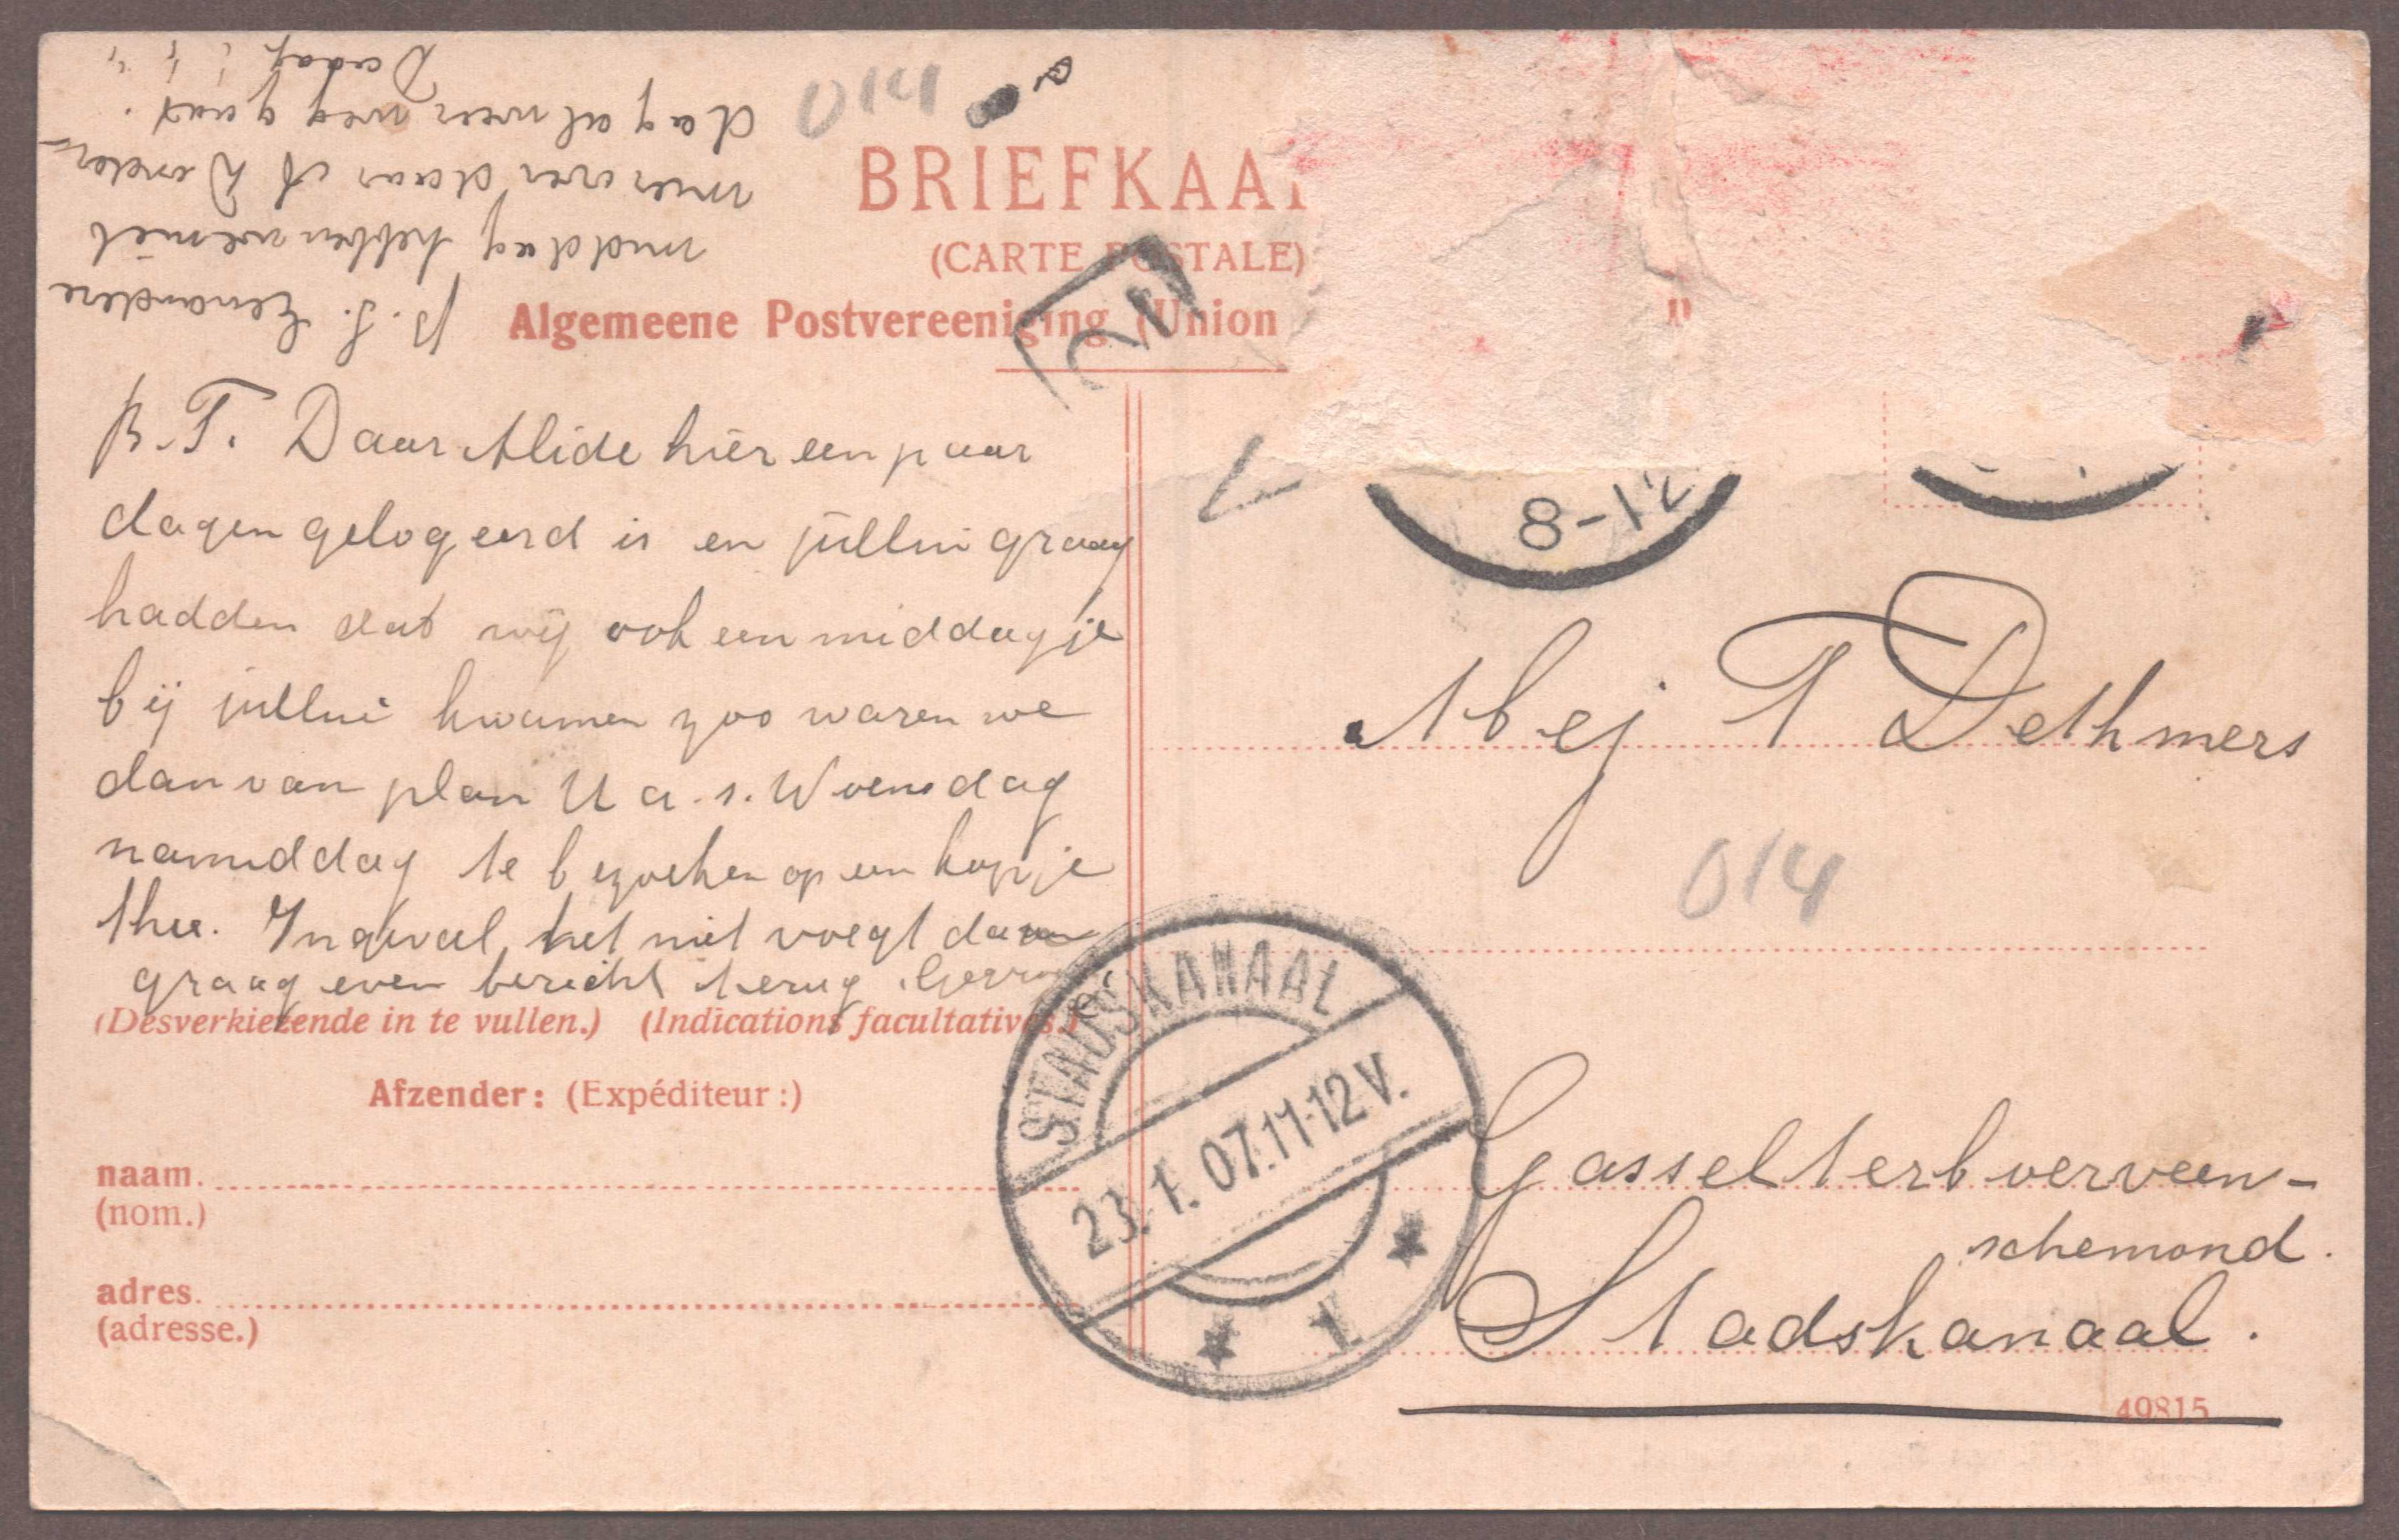 014
BRIEFKAA
(CARTE POSTALE)
Algemeene Postvereeniging (Union
B. T. Daar Alide hier een paar
dagen gelogeerd is en jullui graag
hadden dat wij ook een middagje
bij jullui kwamen zoo waren we
dan van plan U a. s. Woensdag
namiddag te bezoeken op een kopje
thee. Ingeval het niet voegt dan
graag even bericht terug.
p. s. Een andere
middag hebben we niet
meer over daar A Donder-
dag al weer weg gaat.
Dedag
(Desverkiezende in te vullen.) (Indications facultatives.)
Afzender: (Expéditeur:)
naam.
(nom.)
adres.
(adresse.)
8-12
Mej T Dethmers
014
Gasselterboerveen-
schemond.
Stadskanaal.
49815
STADSKANAAL
23.1.07.11-12V.
* 1 *